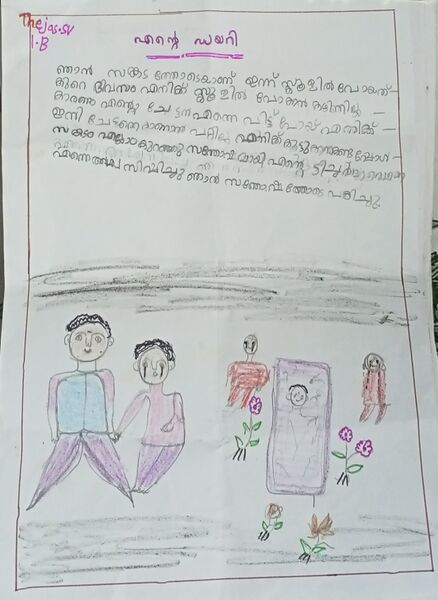 Thejas.SV
1.B
എന്റെ ഡയറി
ഞാൻ സങ്കട ത്തോടെയാണ് ഇന്ന് സ്കൂളിൽ പോയത്
കുറെ ദിവസം എനിക്ക് സ്കൂളിൽ പോകാൻ കഴിഞ്ഞില്ല
കാരണം എന്റെ ചേട്ടൻ എന്നെ വിട്ട് പോയ് എനിക്ക്
ഇനി ചേട്ടനെ കാണാൻ പറ്റില്ല എനിക്ക് കൂട്ടുകാരുണ്ട്
സങ്കടം എല്ലാം കുറഞ്ഞു സന്തോഷമായി എന്റെ ടീച്ചർ
എന്നെ ആശ്വസിപ്പിച്ചു ഞാൻ സന്തോഷത്തോടെ പഠിച്ചു.